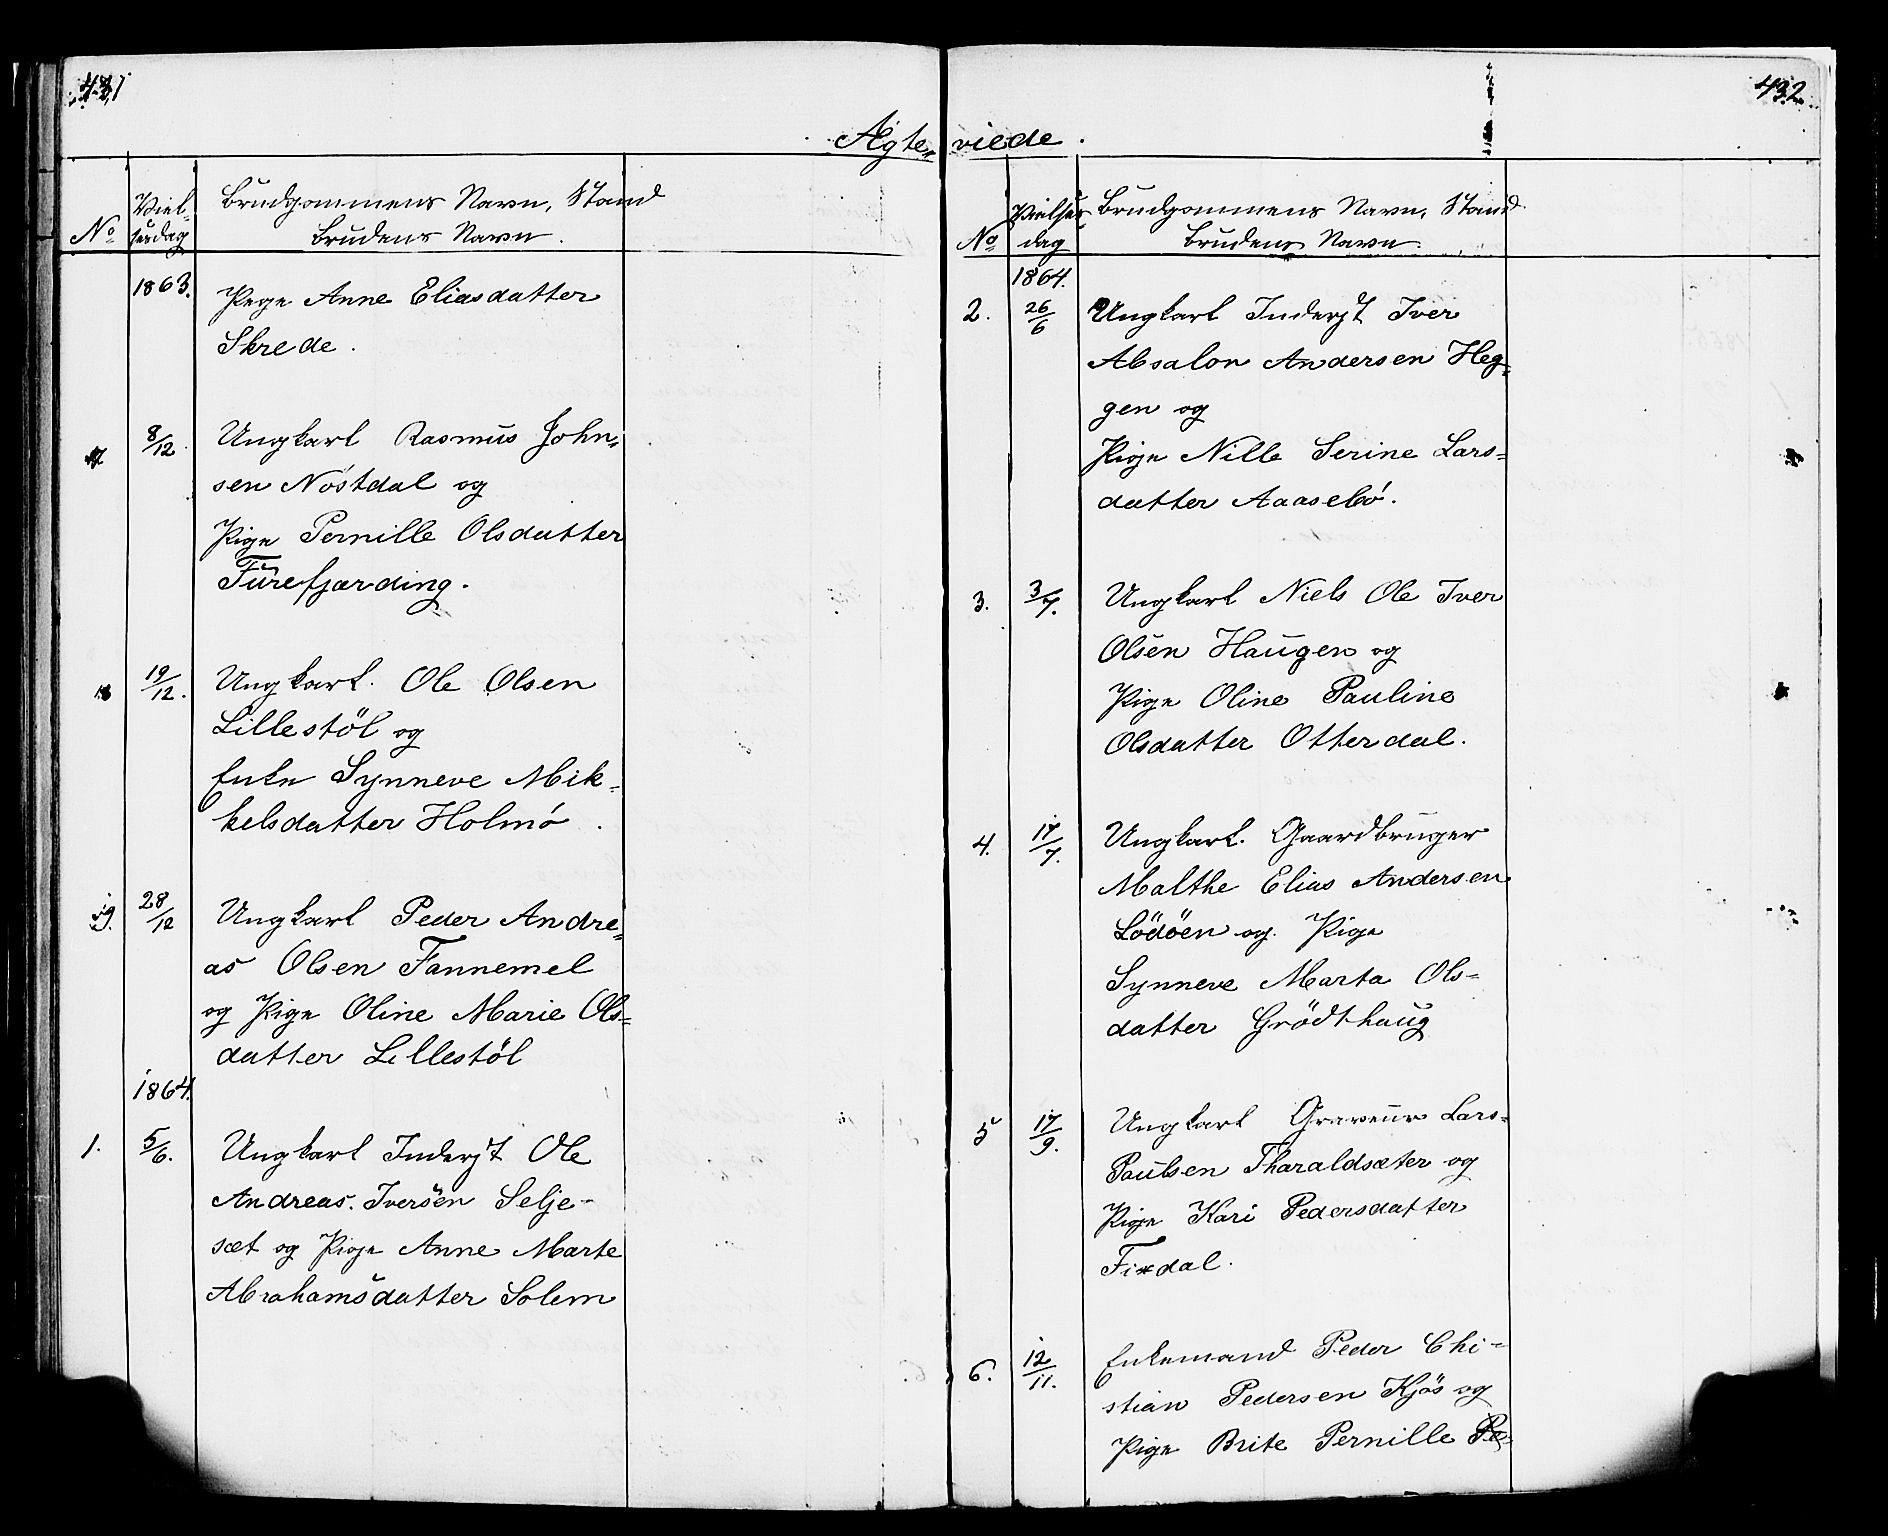 431
Ægte-
No
Viel-
sesdag
Brudgommens Navn, Stand
Brudens Navn.
1863.
Pige Anne Eliasdatter
Skrede.
8/12
Ungkarl Rasmus John-
sen Nöstdal og
Pige Pernille Olsdatter
Furefjærding.
18
19/12.
Ungkarl. Ole Olsen
Lillestöl og
Enke Synneve Mik-
kelsdatter Holmö.
19.
28/12
Ungkarl Peder Andre-
as Olsen Fannemel
og Pige Oline Marie Ols-
datter Lillestöl
1864.
1.
5/6.
Ungkarl Inderjt Ole
Andreas. Iversen Selje-
sæt og Pige Anne Marte
Abrahamsdatter Solem
432
viede.
No
Vielses
dag
Brudgommens Navn, Stand
Brudens Navn.
1864.
2.
26/6
Ungkarl Inderjt Iver
Absalon Andersen Heg-
gen og
Pige Nille Serine Lars-
datter Aaasebö.
3.
3/7.
Ungkarl Niels Ole Iver
Olsen Haugen og
Pige Oline Pauline
Olsdatter Otterdal.
4.
17/7.
Ungkarl. Gaardbruger
Malthe Elias Andersen
Lödöen og. Pige
Synneve Marta Ols-
datter Grödthaug
5
17/9.
Ungkarl Graveur Lars-
Paulsen Tharaldsæter og
Pige Kari Pedersdatter
Fixdal.
6.
12/11.
Enkemand Peder Chi-
stian Pedersen Kjös og
Pige Brite Pernille Pe-